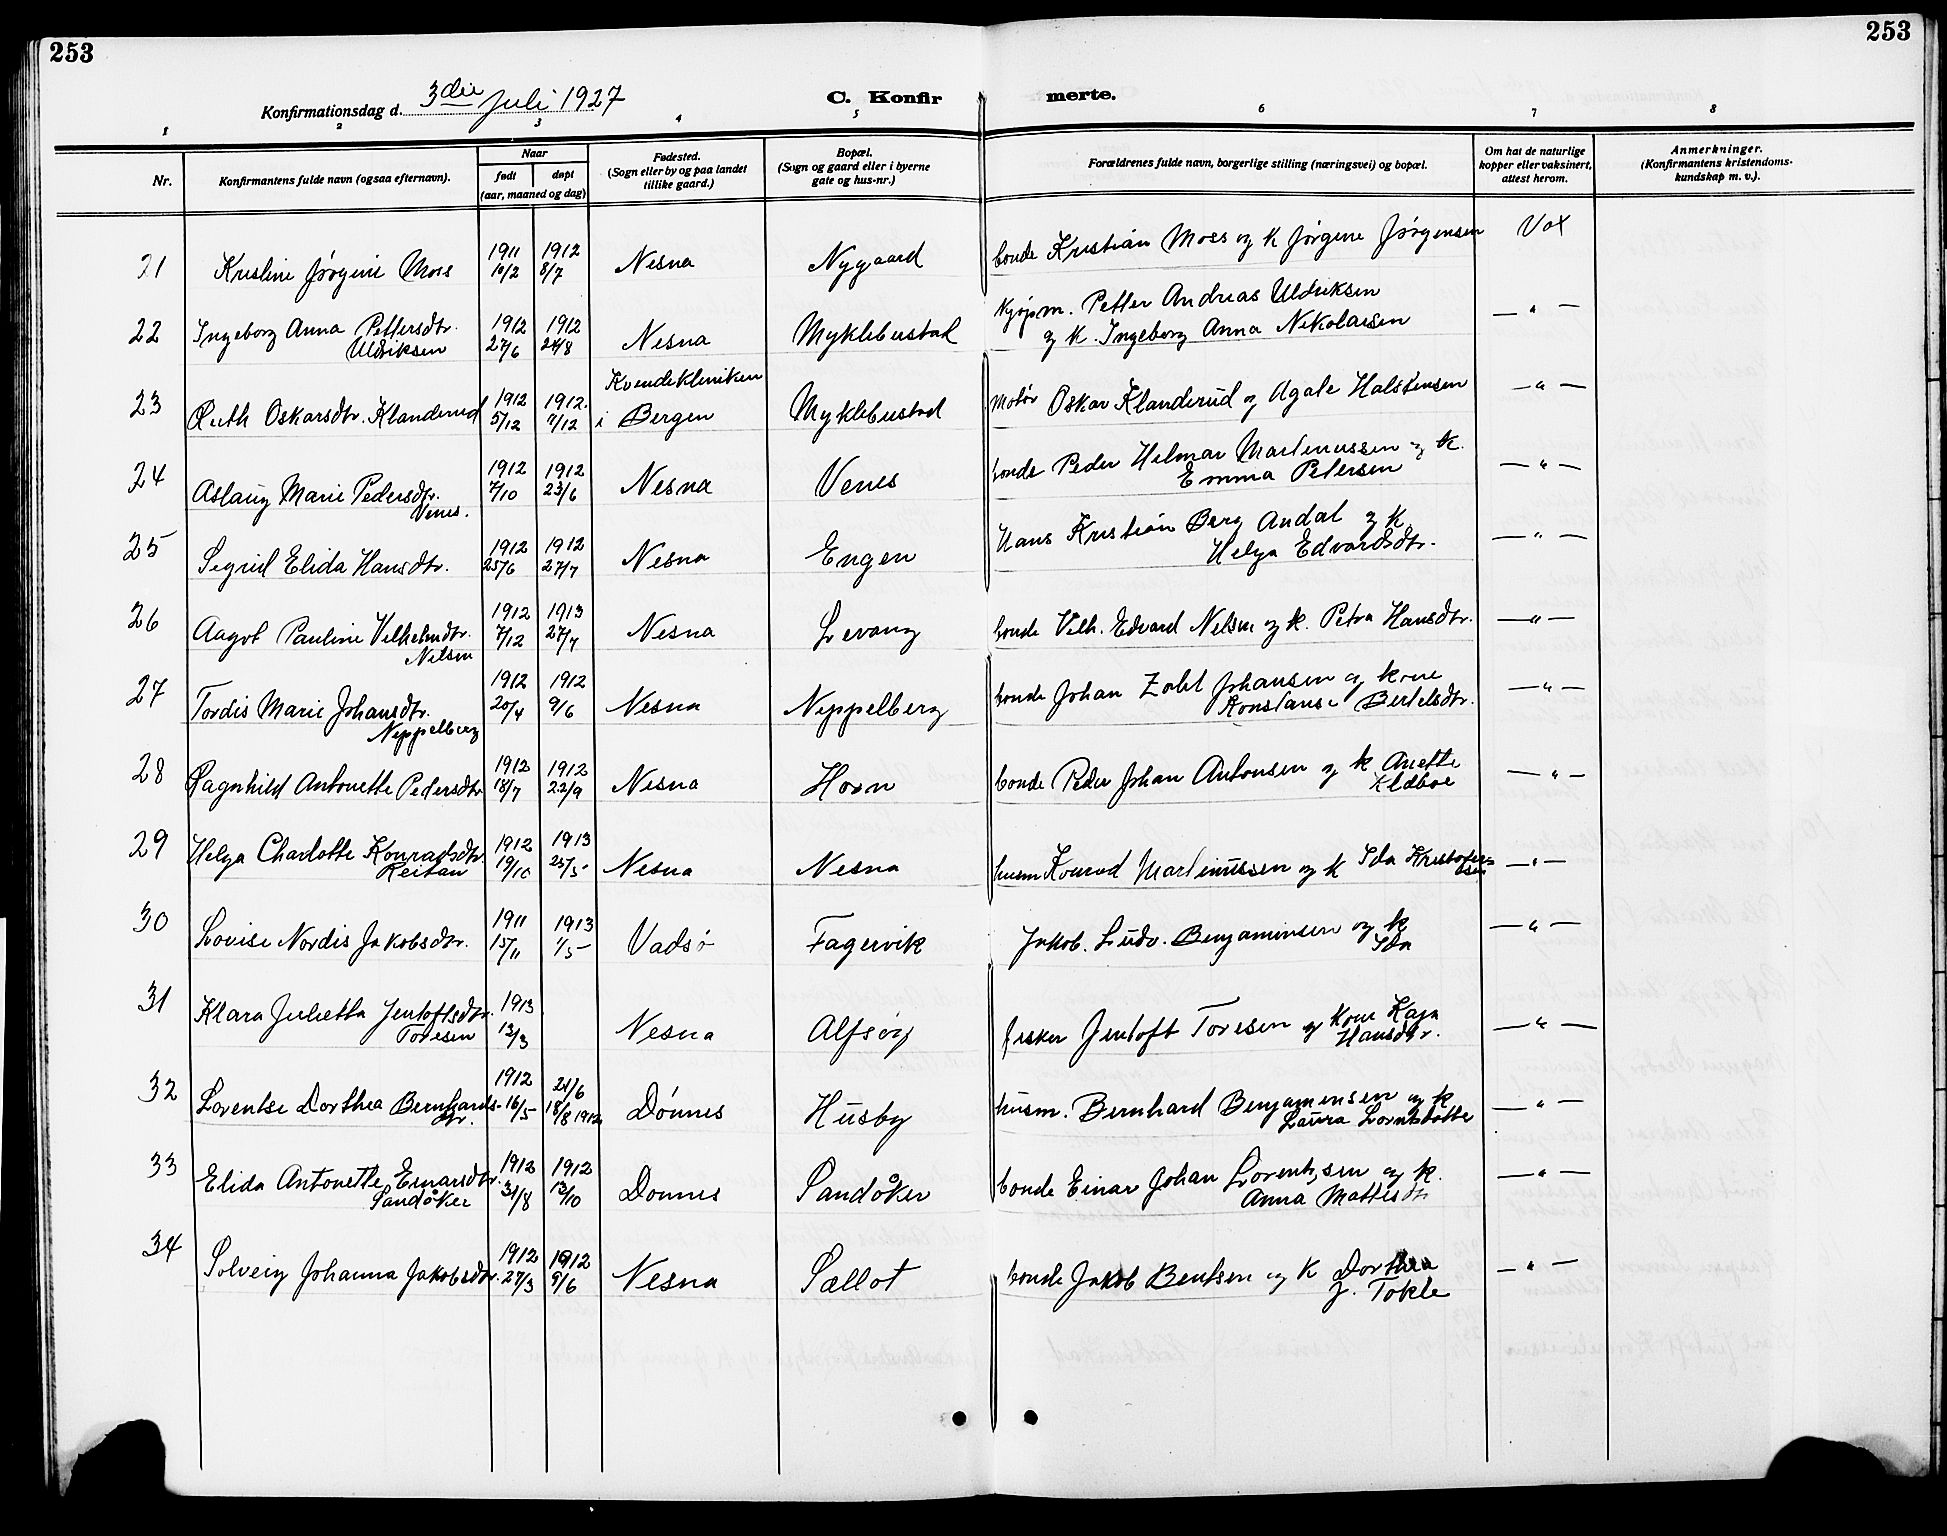 253
253
Konfirmationsdag d. 3die Juli 1927
C. Konfirmerte.
1 2 3 4 5 6 7 8
Nr.
Konfirmantens fulde navn (ogsaa efternavn).
Naar
født
døpt
(aar, maaned og dag)
Fødested.
(Sogn eller by og paa landet
tillike gaard.)
Bopæl.
(Sogn og gaard eller i byerne
gate og hus-nr.)
Forældrenes fulde navn, borgerlige stilling (næringsvei) og bopæl.
Om hat de naturlige
kopper eller vaksinert,
attest herom.
Anmerkninger.
(Konfirmantens kristendoms-
kundskap m. v.).
21 Kristine Jørgine Moes 1911 10/2 1912 8/7 Nesna Nygaard bonde Kristian Moes og k Jørgine Jørgensen Vax
22 Ingeborg Anna Pettersdtr. Uldriksen 1912 27/6 1912 24/8 Nesna Myklebustad Kjøpm. Petter Andreas Uldriksen
og k. Ingeborg Anna Nikolaisen — " —
23 Ruth Oskarsdtr. Klanderud 1912 5/12 1912. 9/12 Kvindekliniken
i Bergen Myklebustad Motør Oskar Klanderud og Agate Halstensen — " —
24 Aslaug Marie Pedersdtr. Venes. 1912 7/10 1912 23/6 Nesna Venes bonde Peder Helmar Martinussen og k.
Emma Petersen — " —
25 Sigrid Elida Hansdtr. 1912 25/6 1912 27/7 Nesna Engen Hans Kristian Berg Andal og k.
Helga Edvardsdtr. — " —
26 Aagot Pauline Vilhelmdtr. Nilsen 1912 7/12 1913 27/7 Nesna Levang bonde Vilh. Edvard Nelsen og k. Petra Hansdtr. — " —
27 Tordis Marie Johansdtr. Neppelberg 1912 20/4 1912 9/6 Nesna Neppelberg bonde Johan Zakl Johansen og kone
Konstanse Bertelsdtr. — " —
28 Ragnhild Antonette Pedersdtr 1912 18/7 1912 22/9 Nesna Horn bonde Peder Johan Antonsen og k Anette
Kldboe — " —
29 Helga Charlotte Konradsdtr. Reitan 1912 19/10 1913 25/5 Nesna Nesna husm Konrad Martinussen og k Ida Kristofer=
sen — " —
30 Lovise Nordis Jakobsdtr. 1911 15/11 1913 1/5 Vadsø Fagervik Jakob. Ludv. Benjaminsen og k
Ida — " —
31 Klara Julietta Jentoftsdtr. Toresen 1913 13/3 Nesna Alfsøy fisker Jentoft Toresen og kone Kaja
Hansdtr. — " —
32 Lorentse Dorthea Bernhards-
dtr. 1912 16/5 21/6 18/8 1912 Dønnes Husby husm. Bernhard Benjaminsen og k
Laura Lorntsdatter — " —
33 Elida Antonette Einarsdtr. Sandåker 1912 31/8 1912 13/10 Dønnes Sandåker bonde Einar Johan Lorentzsen og k.
Anna Mattisdtr — " —
34 Solveig Johanna Jakobsdtr. 1912 27/3 1912 9/6 Nesna Sællot bonde Jakob Bentsen og k Dorthea
J. Tokle — " —